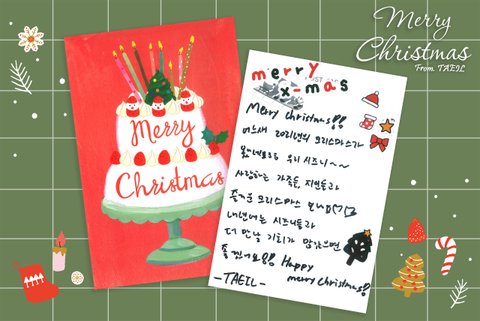 Merry
Christmas
From. TAEIL
Merry
Christmas
merry
x-mas
Merry christmas!!
어느새 2021년의 크리스마스가
우리 시즈니~~
사랑하는 가족들, 지인들과
즐거운 크리스마스
내년에는 시즈니들과
더 만날 기회가 많았으면
좋겠어요!! Happy
merry christmas!
-TAEIL-